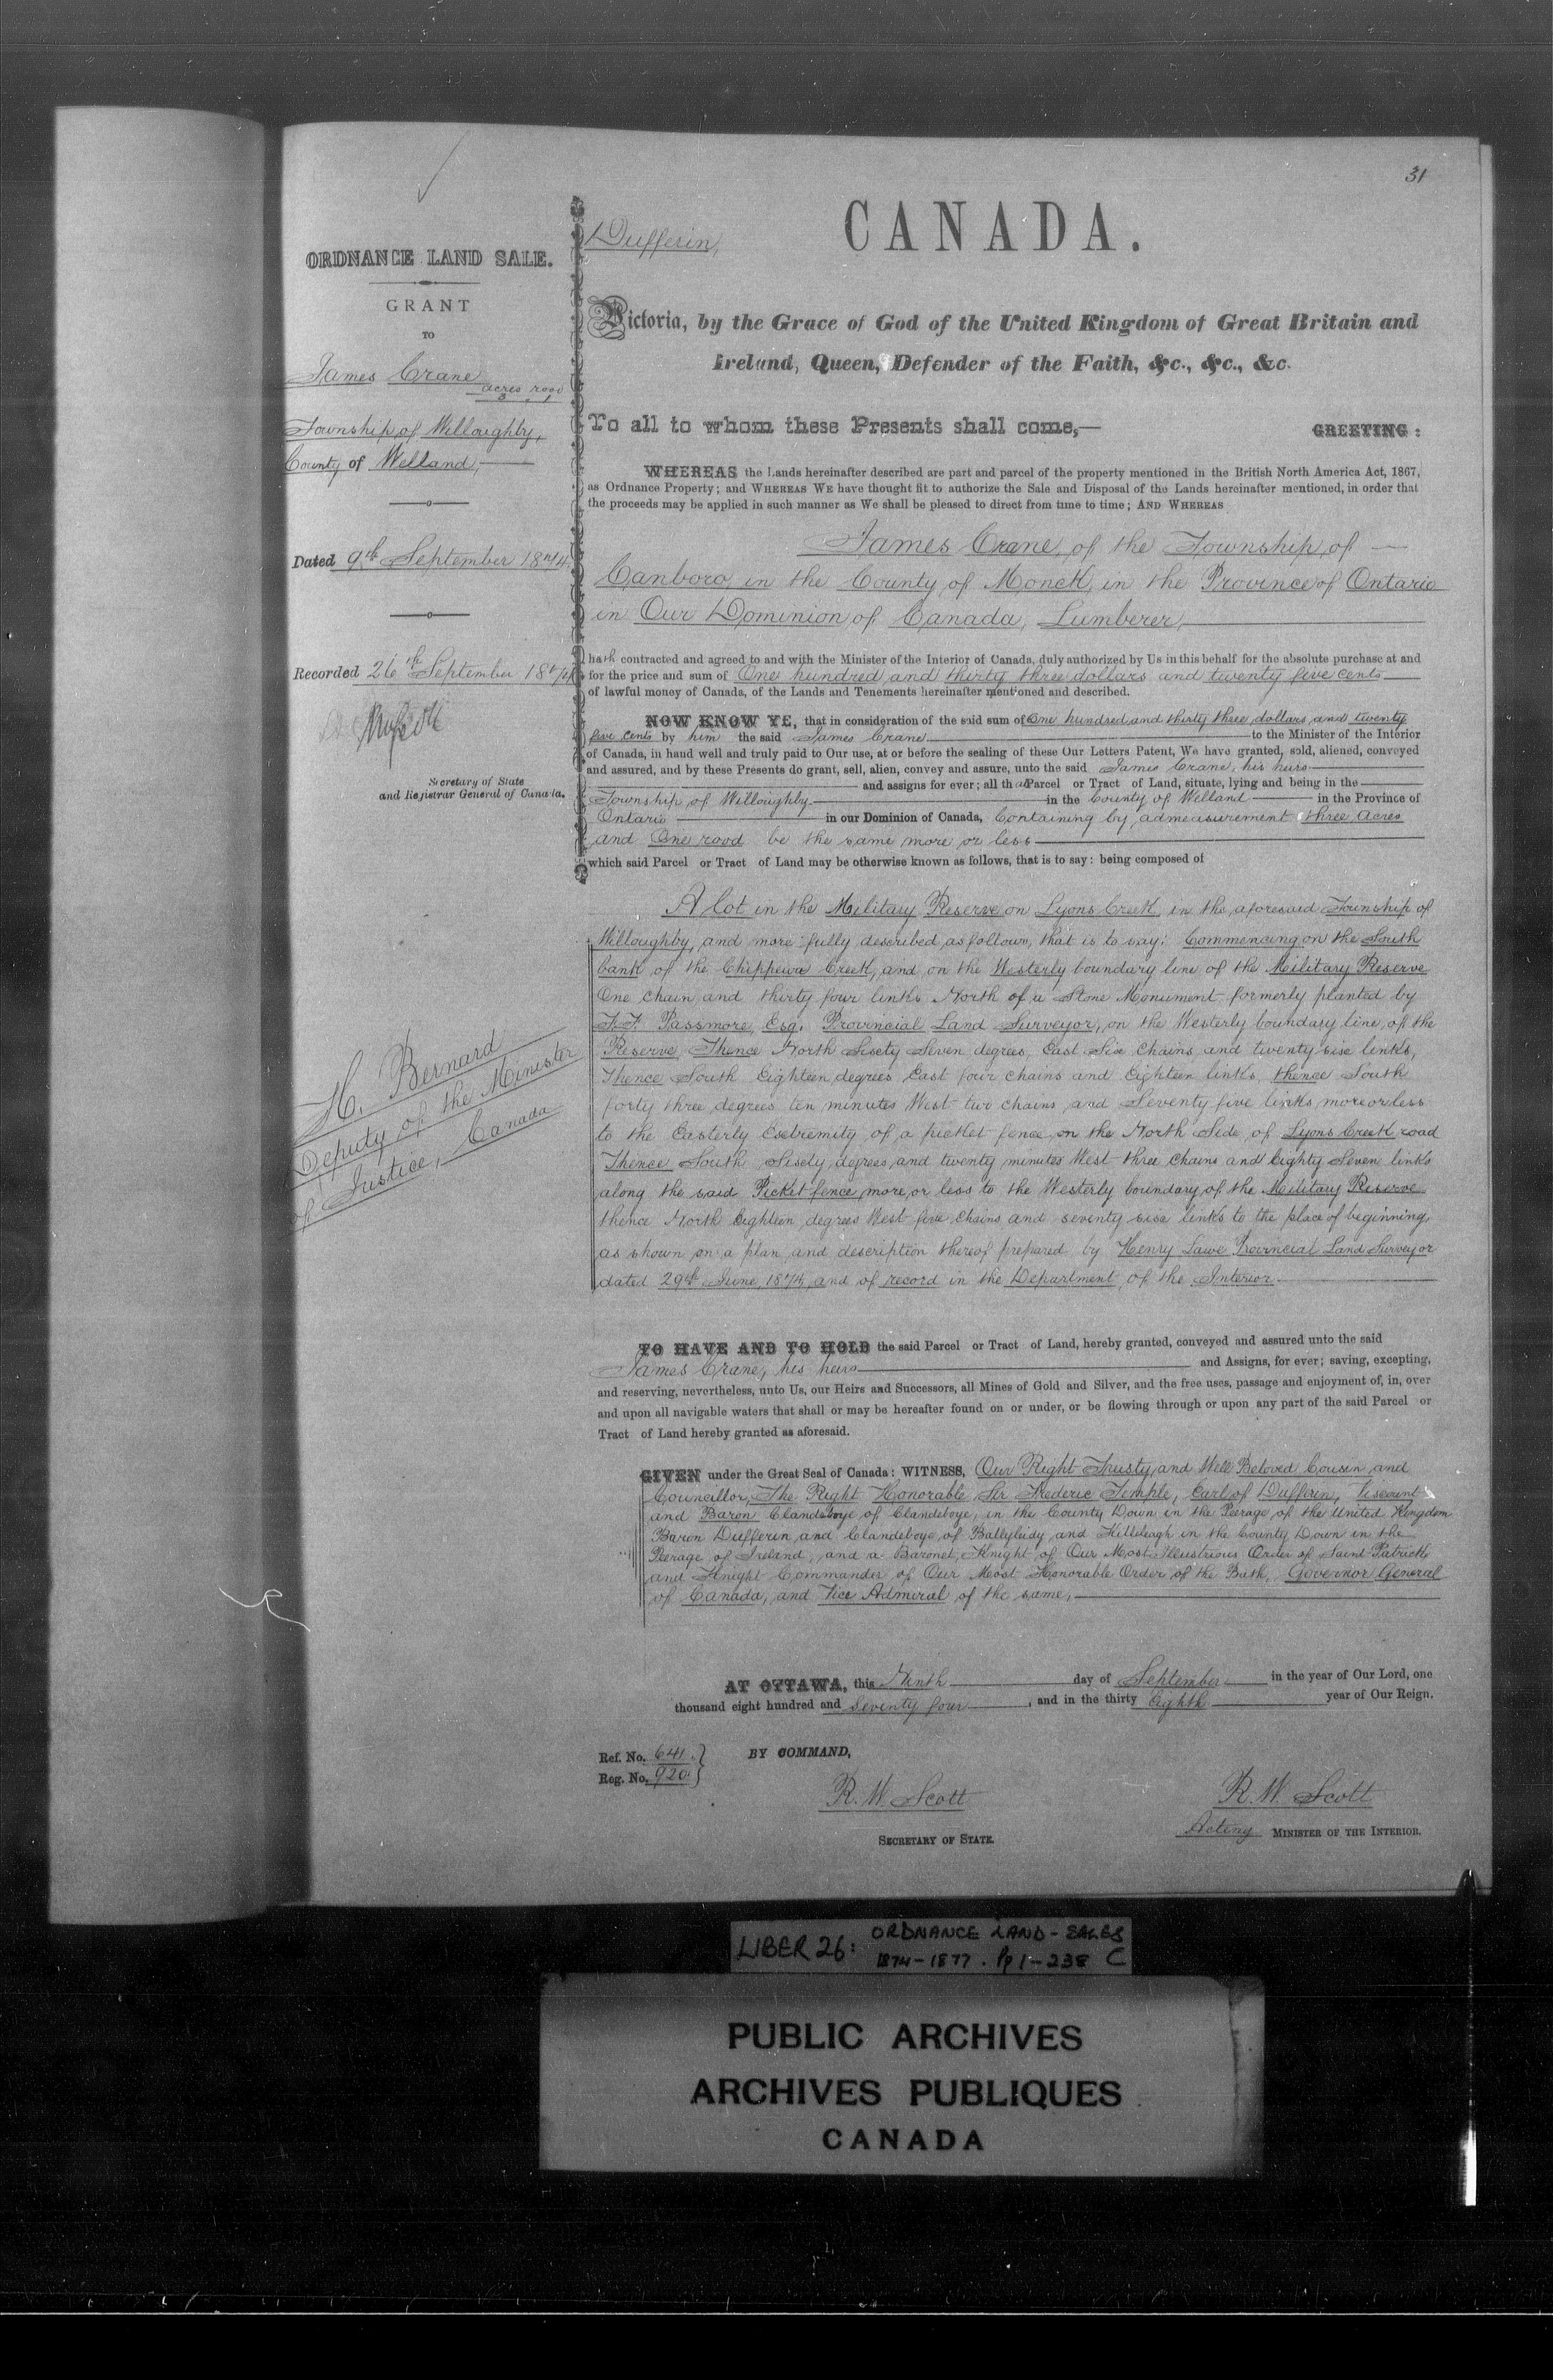 31
ORDNANCE LAND SALE.
GRANT
TO
James Crane
acres rood
3 . 1
Township of Willoughby,
County of Welland,
Dated 9th September 1874
Recorded 26th September 1874
Secretary of State
and Registrar General of Canada.
H. Bernard
Deputy of the Minister
of Justice, Canada
Dufferin,
CANADA.
Victoria, by the Grace of God of the United Kingdom of Great Britain and
Ireland, Queen, Defender of the Faith, &c., &c., &c.
To all to whom these Presents shall come,— GREETING :
WHEREAS the Lands hereinafter described are part and parcel of the property mentioned in the British North America Act, 1867,
as Ordnance Property; and WHEREAS WE have thought fit to authorize the Sale and Disposal of the Lands hereinafter mentioned, in order that
the proceeds may be applied in such manner as We shall be pleased to direct from time to time; AND WHEREAS
James Crane, of the Township of
Canboro, in the County of Monck, in the Province of Ontario
in Our Dominion of Canada, Lumberer,
hath contracted and agreed to and with the Minister of the Interior of Canada, duly authorized by Us in this behalf for the absolute purchase at and
for the price and sum of One hundred and thirty three dollars and twenty five cents
of lawful money of Canada, of the Lands and Tenements hereinafter mentioned and described.
NOW KNOW YE, that in consideration of the said sum of One hundred and thirty three dollars and twenty
five cents by him the said James Crane to the Minister of the Interior
of Canada, in hand well and truly paid to Our use, at or before the sealing of these Our Letters Patent, We have granted, sold, aliened, conveyed
and assured, and by these Presents do grant, sell, alien, convey and assure, unto the said James Crane, his heirs
and assigns for ever; all that Parcel or Tract of Land, situate, lying and being in the
Township of Willoughby in the County of Welland in the Province of
Ontario in our Dominion of Canada, Containing by admeasurement three acres
and One rood be the same more or less
which said Parcel or Tract of Land may be otherwise known as follows, that is to say: being composed of
A lot in the Military Reserve on Lyons Creek, in the aforesaid Township of
Willoughby, and more fully described as follows, that is to say: Commencing on the South
bank of the Chippewa Creek, and on the Westerly boundary line of the Military Reserve
One chain and thirty four links North of a Stone Monument formerly planted by
F.F. Passmore, Esq. Provincial Land Surveyor, on the Westerly boundary line, of the
Reserve, Thence North Sixty Seven degrees, East Six chains and twenty six links,
Thence South Eighteen degrees East four chains and Eighteen links, thence South
forty three degrees ten minutes West two chains, and Seventy five links, more or less
to the Easterly Extremity of a picket fence, on the North Side, of Lyons Creek road
Thence South Sixty degrees and twenty minutes West three chains and Eighty Seven links
along the said Picket fence, more or less to the Westerly boundary of the Military Reserve
thence North Eighteen degrees West five chains and seventy six links to the place of beginning,
as shown on a plan and description thereof prepared by Henry Lawe Provincial Land Surveyor
dated 29th June, 1874, and of record in the Department of the Interior.
TO HAVE AND TO HOLD the said Parcel or Tract of Land, hereby granted, conveyed and assured unto the said
James Crane, his heirs and Assigns, for ever; saving, excepting,
and reserving, nevertheless, unto Us, our Heirs and Successors, all Mines of Gold and Silver, and the free uses, passage and enjoyment of, in, over
and upon all navigable waters that shall or may be hereafter found on or under, or be flowing through or upon any part of the said Parcel or
Tract of Land hereby granted as aforesaid.
GIVEN under the Great Seal of Canada: WITNESS, Our Right Trusty and Well Beloved Cousin and
Councillor, The Right Honorable Sir Frederic Temple, Earl of Dufferin, Viscount
and Baron Clandeboye of Clandeboye, in the County Down in the Peerage of the United Kingdom
Baron Dufferin and Clandeboye, of Ballyleidy and Killeleagh in the County Down in the
Peerage of Ireland, and a Baronet, Knight of Our Most Illustrious Order of Saint Patrick,
and Knight Commander of Our Most Honorable Order of the Bath, Governor General
of Canada, and Vice Admiral of the same,
AT OTTAWA, this Ninth day of September in the year of Our Lord, one
thousand eight hundred and Seventy four, and in the thirty Eighth year of Our Reign.
Ref. No. 641.
Reg. No. 920
BY COMMAND,
R. W. Scott
SECRETARY OF STATE.
R. W. Scott
Acting MINISTER OF THE INTERIOR.
LIBER 26: ORDNANCE LAND-SALES
1874-1877. Pp 1-238 C
PUBLIC ARCHIVES
ARCHIVES PUBLIQUES
CANADA